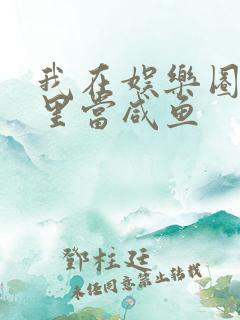 我在娱樂圈
里當咸鱼
鄧柱廷
未經同意禁止转載